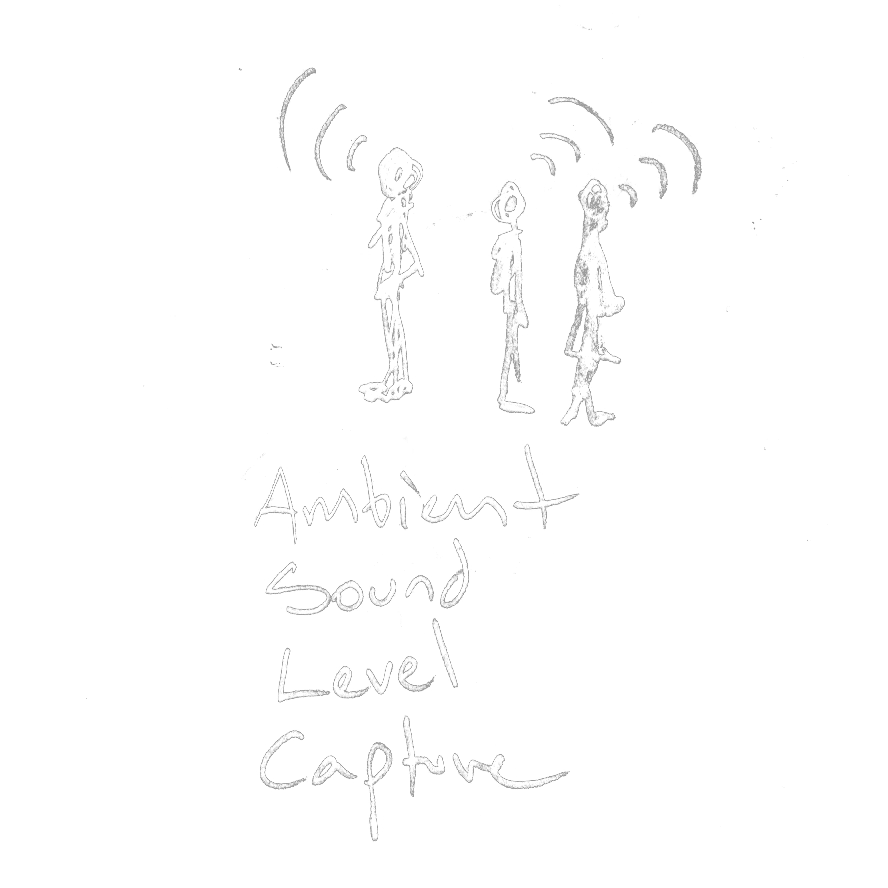 Ambient
Sound
Level
Capture